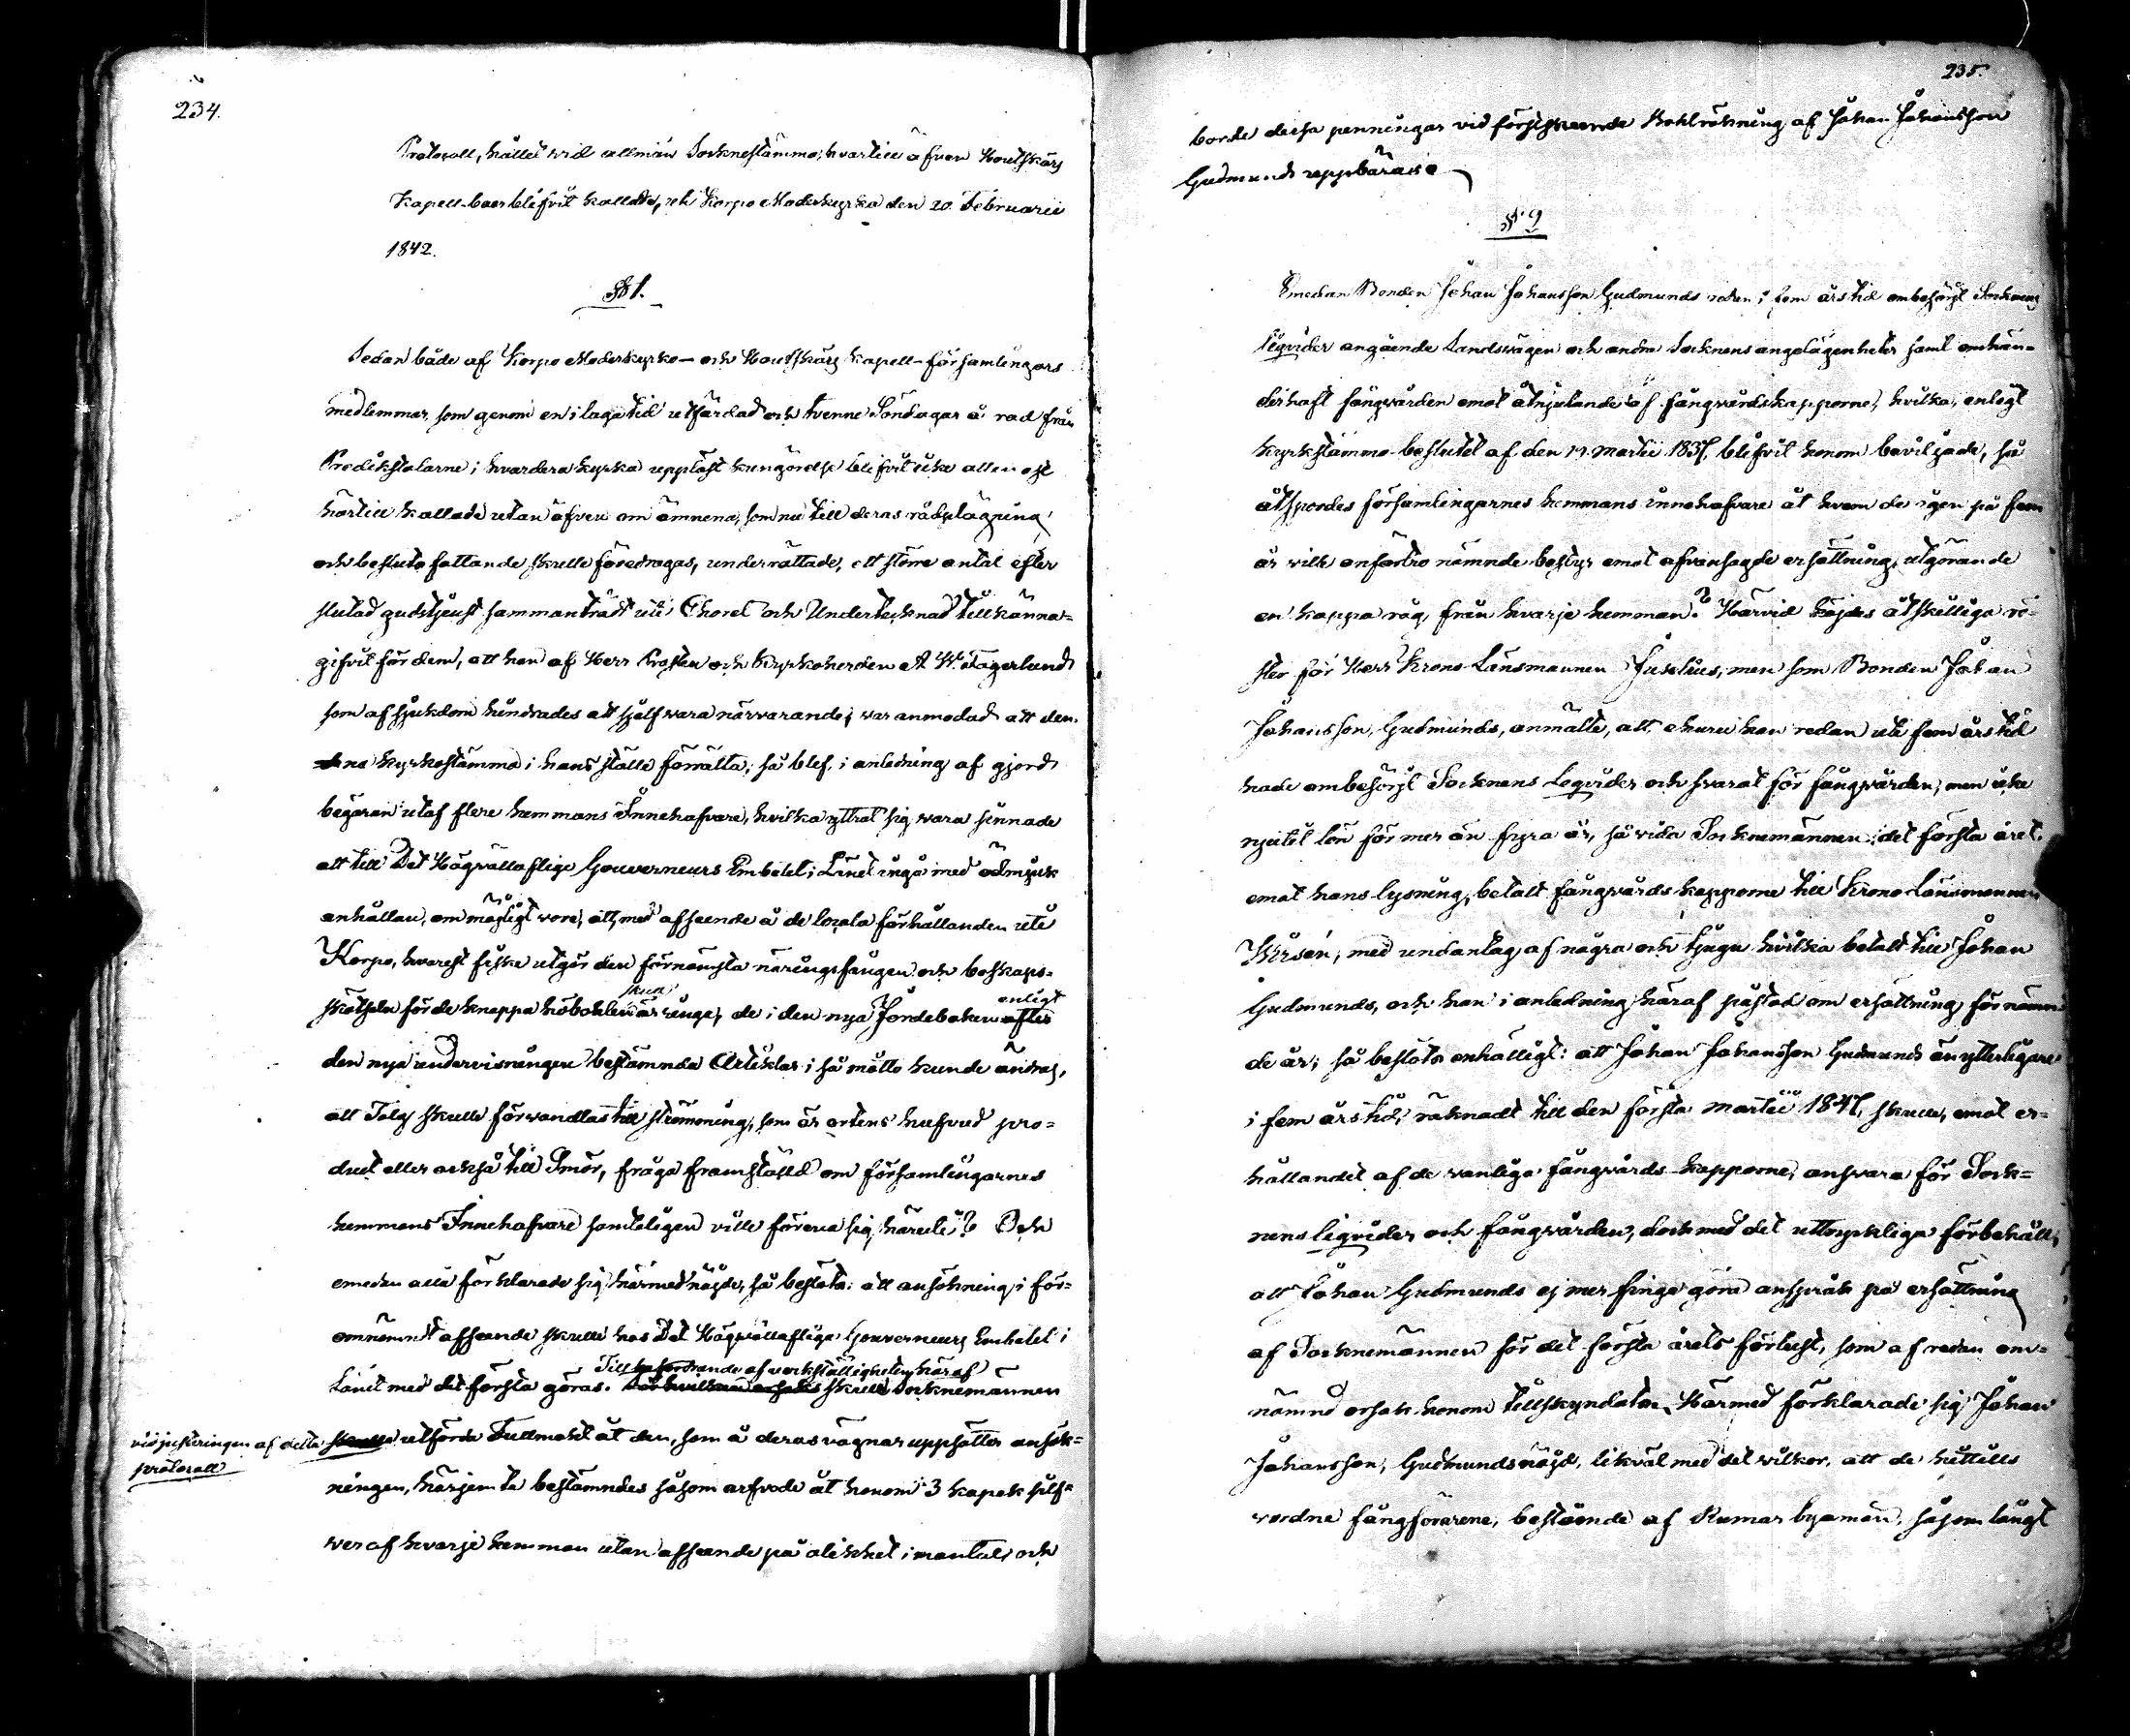 234.
Protocoll, hållet vid allmän Socknestämma, hvartill äfven Houtskärs
Kapell-boer blifvit kallade, uti Korpo Moderkyrka den 20 Februarii
1842.
§ 1.
Sedan både af Korpo Moderkyrko- och Houtskärs Kapell-församlingars
medlemmar, som genom en i laga tid utfärdad och tvenne Söndagar å rad från
Predikstolarne i hvardera kyrka uppläst kungörelse blifvit icke allenast
härtill kallade utan äfven om ämnena, som nu till deras rådplägning
och besluts fattande skulle föredragas, underrättade, ett större antal efter
slutad gudstjenst sammanträdt uti Choret och Undertecknad tillkänna-
gifvit för dem, att han af Herr Prosten och Kyrkoherden A. W. Fagerlund
som af sjukdom hindrades att sjelf vara närvarande, var anmodad att den-
na kyrkostämma i hans ställe förrätta; så blef, i anledning af gjord
begäran utaf flere hemmans Innehafvare, hvilka yttrat sig vara sinnade
att till Det Högvällaflige Gouverneurs Embetet i Länet ingå med ödmjuk
anhållan, om möjligt vore, att, med afseende å de locala förhållanden uti
Korpo, hvarest fiske utgör den förnämsta näringsfången och boskaps-
skötseln för de knappa höbohlen skull är ringa, de i den nya Jordeboken enligt efter
den nya undervisningen bestämnda Artiklar i så måtto kunde ändras,
att Talg skulle förvandlas till strömming, som är ortens hufvud pro-
duct eller också till Smör, fråga framställd om församlingarnes
hemmans Innehafvare samteligen ville förena sig häruti? Och
emedan alla förklarade sig härmed nöjde, så beslöts: att ansökning i för-
omnämnt afseende skulle hos Det Högvällaflige Gouverneurs Embetet i
Till befordrande af verkställigheten häraf
Länet med det första göras. skulle Socknemännen
vid justeringen af detta skulle utfärda Fullmakt åt den, som å deras vägnar uppsätter ansök-
protocoll
ningen, härjemte bestämndes såsom arfvode åt honom 3 kopek silf-
ver af hvarje hemman utan afseende på olikhet i mantal, och
235.
borde dessa penningar vid förestående Bohlräkning af Johan Johansson
Gudmunds uppbäras.
§ 2
Emedan Bonden Johan Johansson Gudmunds redan i fem års tid ombesörjt Socknens
liqvider angående Landsvägen och andra Socknens angelägenheter samt omhän-
derhaft fångvården emot åtnjutande af fångvårdskapporne, hvilka, enligt
kyrkstämmo-beslutet af den 19 Martii 1837, blifvit honom beviljade, så
åtspordes församlingarnes hemmans innehafvare åt hvem de igen på fem
år ville anförtro nämnde bestyr emot ofvansagde ersättning, utgörande
en kappa råg från hvarje hemman? Härvid höjdes åtskilliga rö-
ster för Herr Krono-Länsmannen Juselius, men som Bonden Johan
Johansson, Gudmunds, anmälte, att, ehuru han redan uti fem års tid
hade ombesörjt Socknens Liqvider och svarat för fångvården, men icke
njutit lön för mer än fyra år, så vida Socknemännen i det första året,
emot hans lysning, betalt fångvårds kapporne till Krono Länsmannen
Wirsén, med undantag af några och tjugu hvilka betalt till Johan
Gudmunds, och han i anledning häraf påstod om ersättning för nämn-
de år; så beslöts enhälligt: att Johan Johansson Gudmunds än ytterligare
i fem års tid, räknadt till den första Martii 1847, skulle, emot er-
hållandet af de vanliga fångvårds-kapporne, ansvara för Sock-
nens liqvider och fångvården, dock med det uttryckliga förbehåll,
att Johan Gudmunds ej mer finge göra anspråk på ersättning
af Socknemännen för det första årets förlust, som af redan om-
nämnd orsak honom tillskyndats. Härmed förklarade sig Johan
Johansson, Gudmunds nöjd, likväl med det vilkor, att de hittills
vordne fångförarene, bestående af Rumar byamän, såsom längst